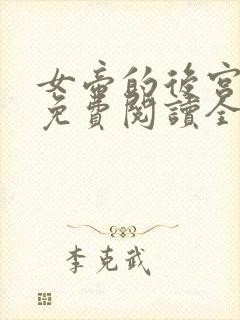 女帝的後宮
免費閱讀全
李克武